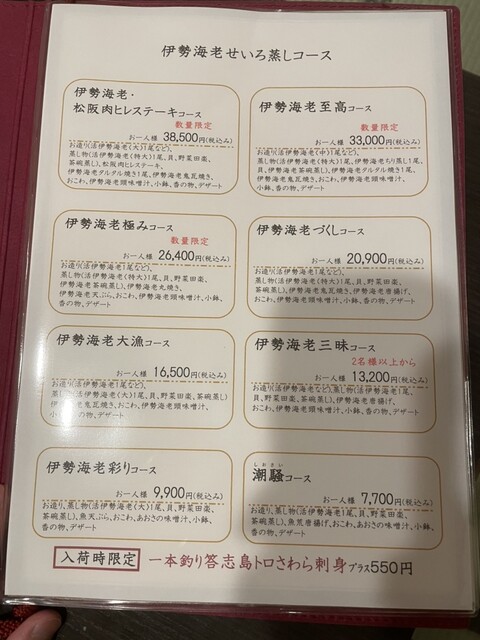 伊勢海老せいろ蒸しコース
伊勢海老・
松阪肉ヒレステーキコース
数量限定
お一人様 38,500円(税込み)
お造り(活伊勢海老(大)1尾など)、
蒸し物(活伊勢海老(特大)1尾、貝、野菜田楽、
茶碗蒸し)、松阪肉ヒレステーキ、
伊勢海老タルタル焼き1尾、伊勢海老鬼瓦焼き、
おこわ、伊勢海老頭味噌汁、小鉢、香の物、デザート
伊勢海老至高コース
数量限定
お一人様 33,000円(税込み)
お造り(活伊勢海老(中)1尾など)、
蒸し物(活伊勢海老(特大)1尾、伊勢海老ちり蒸し1尾、
貝、伊勢海老茶碗蒸し)、伊勢海老タルタル焼き1尾、
伊勢海老鬼瓦焼き、おこわ、伊勢海老頭味噌汁、
小鉢、香の物、デザート
伊勢海老極みコース
数量限定
お一人様 26,400円(税込み)
お造り(活伊勢海老1尾など)、
蒸し物(活伊勢海老(特大)1尾、貝、野菜田楽、
伊勢海老茶碗蒸し)、伊勢海老丸焼き、
伊勢海老天ぷら、おこわ、伊勢海老頭味噌汁、小鉢、
香の物、デザート
伊勢海老づくしコース
お一人様 20,900円(税込み)
お造り(活伊勢海老1尾など)、
蒸し物(活伊勢海老(特大)1尾、貝、野菜田楽、
茶碗蒸し)、伊勢海老鬼瓦焼き、伊勢海老唐揚げ、
おこわ、伊勢海老頭味噌汁、小鉢、香の物、デザート
伊勢海老大漁コース
お一人様 16,500円(税込み)
お造り(活伊勢海老1尾など)、
蒸し物(活伊勢海老(大)1尾、貝、野菜田楽、茶碗蒸し)
伊勢海老鬼瓦焼き、おこわ、伊勢海老頭味噌汁、
小鉢、香の物、デザート
伊勢海老三昧コース
2名様以上から
お一人様 13,200円(税込み)
お造り(活伊勢海老など)、蒸し物(活伊勢海老1尾、
貝、野菜田楽、茶碗蒸し)、伊勢海老唐揚げ、
おこわ、伊勢海老頭味噌汁、小鉢、香の物、デザート
伊勢海老彩りコース
お一人様 9,900円(税込み)
お造り、蒸し物(活伊勢海老(大)1尾、貝、野菜田楽、
茶碗蒸し)、魚天ぷら、おこわ、あおさの味噌汁、小鉢、
香の物、デザート
しおさい
潮騒コース
お一人様 7,700円(税込み)
お造り、蒸し物(活伊勢海老1尾、貝、野菜田楽、
茶碗蒸し)、魚荒唐揚げ、おこわ、あおさの味噌汁、小鉢、
香の物、デザート
入荷時限定 一本釣り答志島トロさわら刺身 プラス550円